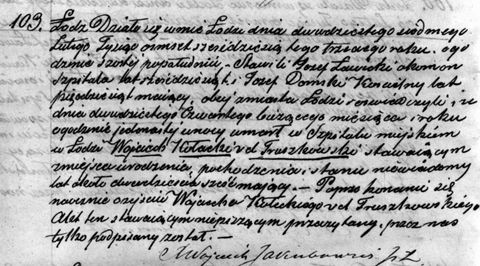 103. Łodz Działo się w mieście Łodzi dnia dwudziestego siodmego
Lutego Tysiąc ośmset sześćdziesiątego trzeciego roku, o go
dzinie szostej popołudniu – Stawili się Jozef Zawiski ekonom
szpitala lat sześćdziesiąt i Jozef Domski Kościelny lat
pięćdziesiąt mający, obaj z miasta Łodzi i oświadczyli iż w
dniu dwudziestego Czwartego bieżącego miesiąca i roku
o godzinie jedenastej w nocy umarł w Szpitalu miejskim
w Łodzi Wojciech Kolacki vel Truszkowski stawającym
z miejsca urodzenia, pochodzenia i stanu niewiadomy
lat około dwadzieścia sześć mający. – Po przekonaniu się
naocznie o zejściu Wojciecha Kolackiego vel Truszkowskiego
Akt ten stawającym niepiszącym przeczytany, przez nas
tylko podpisany został. –
X Wojciech Jakubowicz